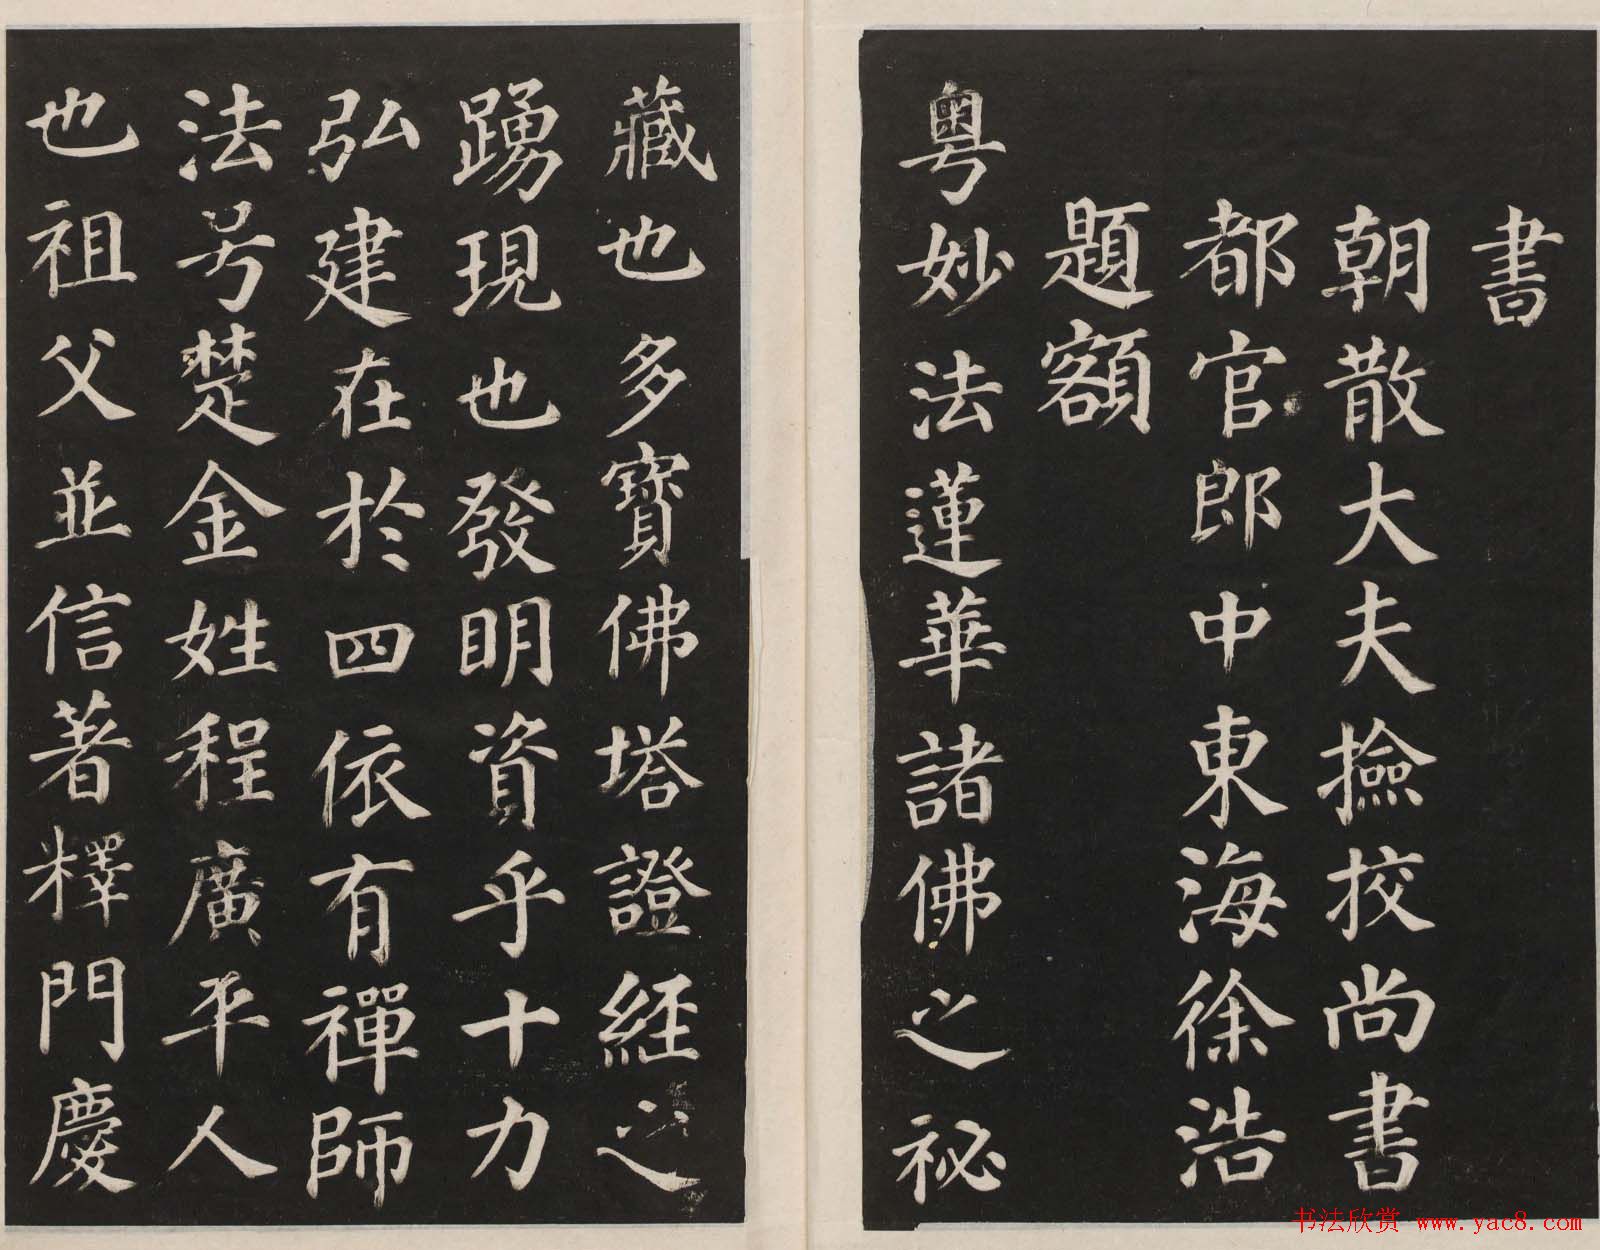 書
朝散大夫撿挍尚書
都官郎中東海徐浩
題額
粵妙法蓮華諸佛之秘
藏也多寶佛塔證經之
踴現也發明資乎十力
弘建在於四依有禪師
法号楚金姓程廣平人
也祖父並信著釋門慶
书法欣赏 www.yac8.com